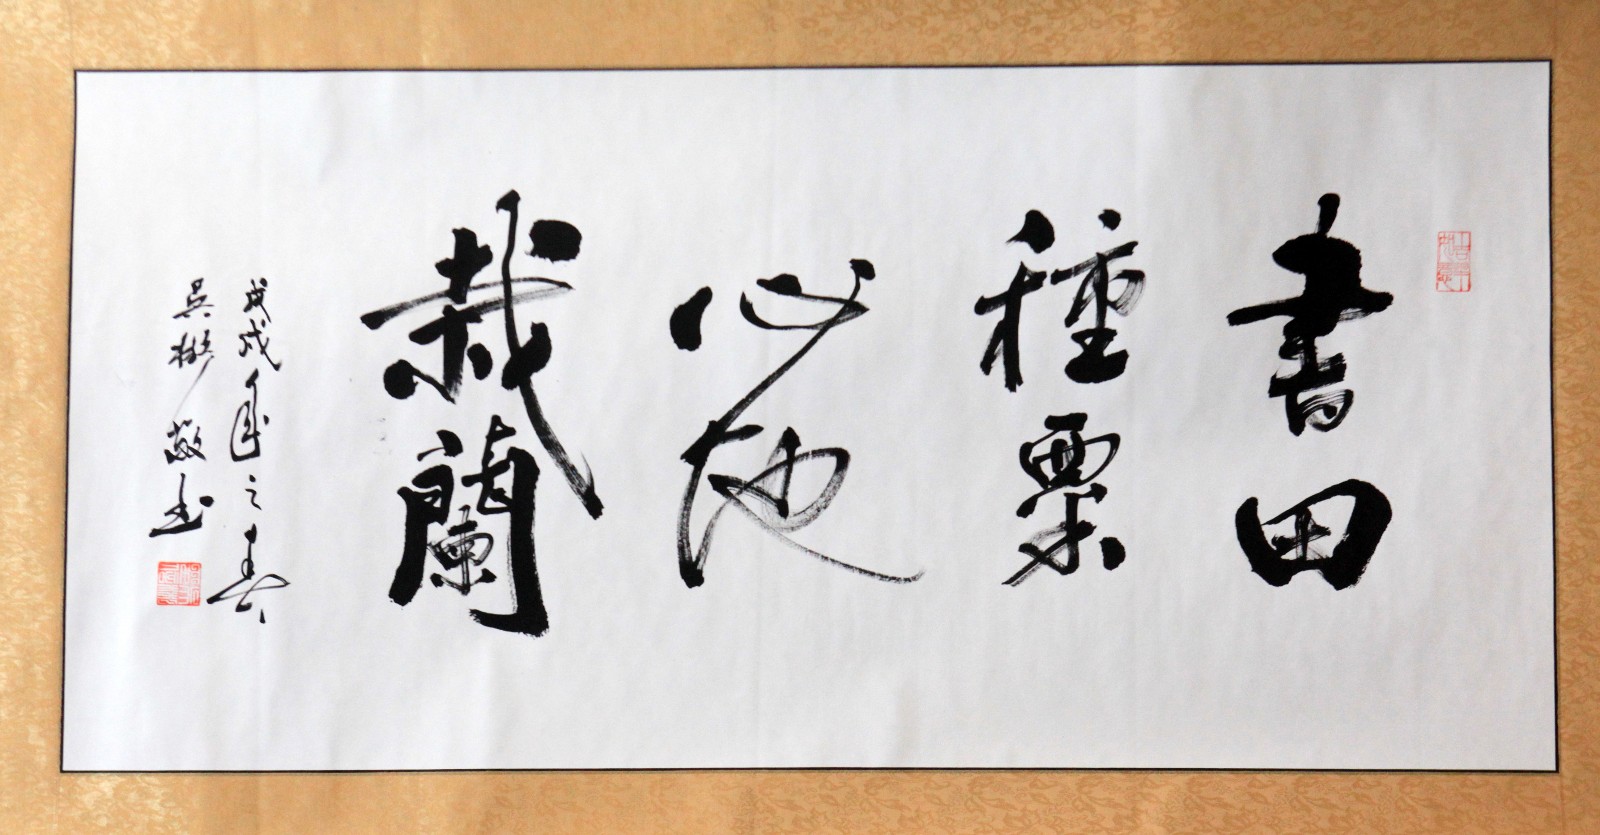 書田
種粟
心地
栽蘭
戊戌年之春
吳彬敬書